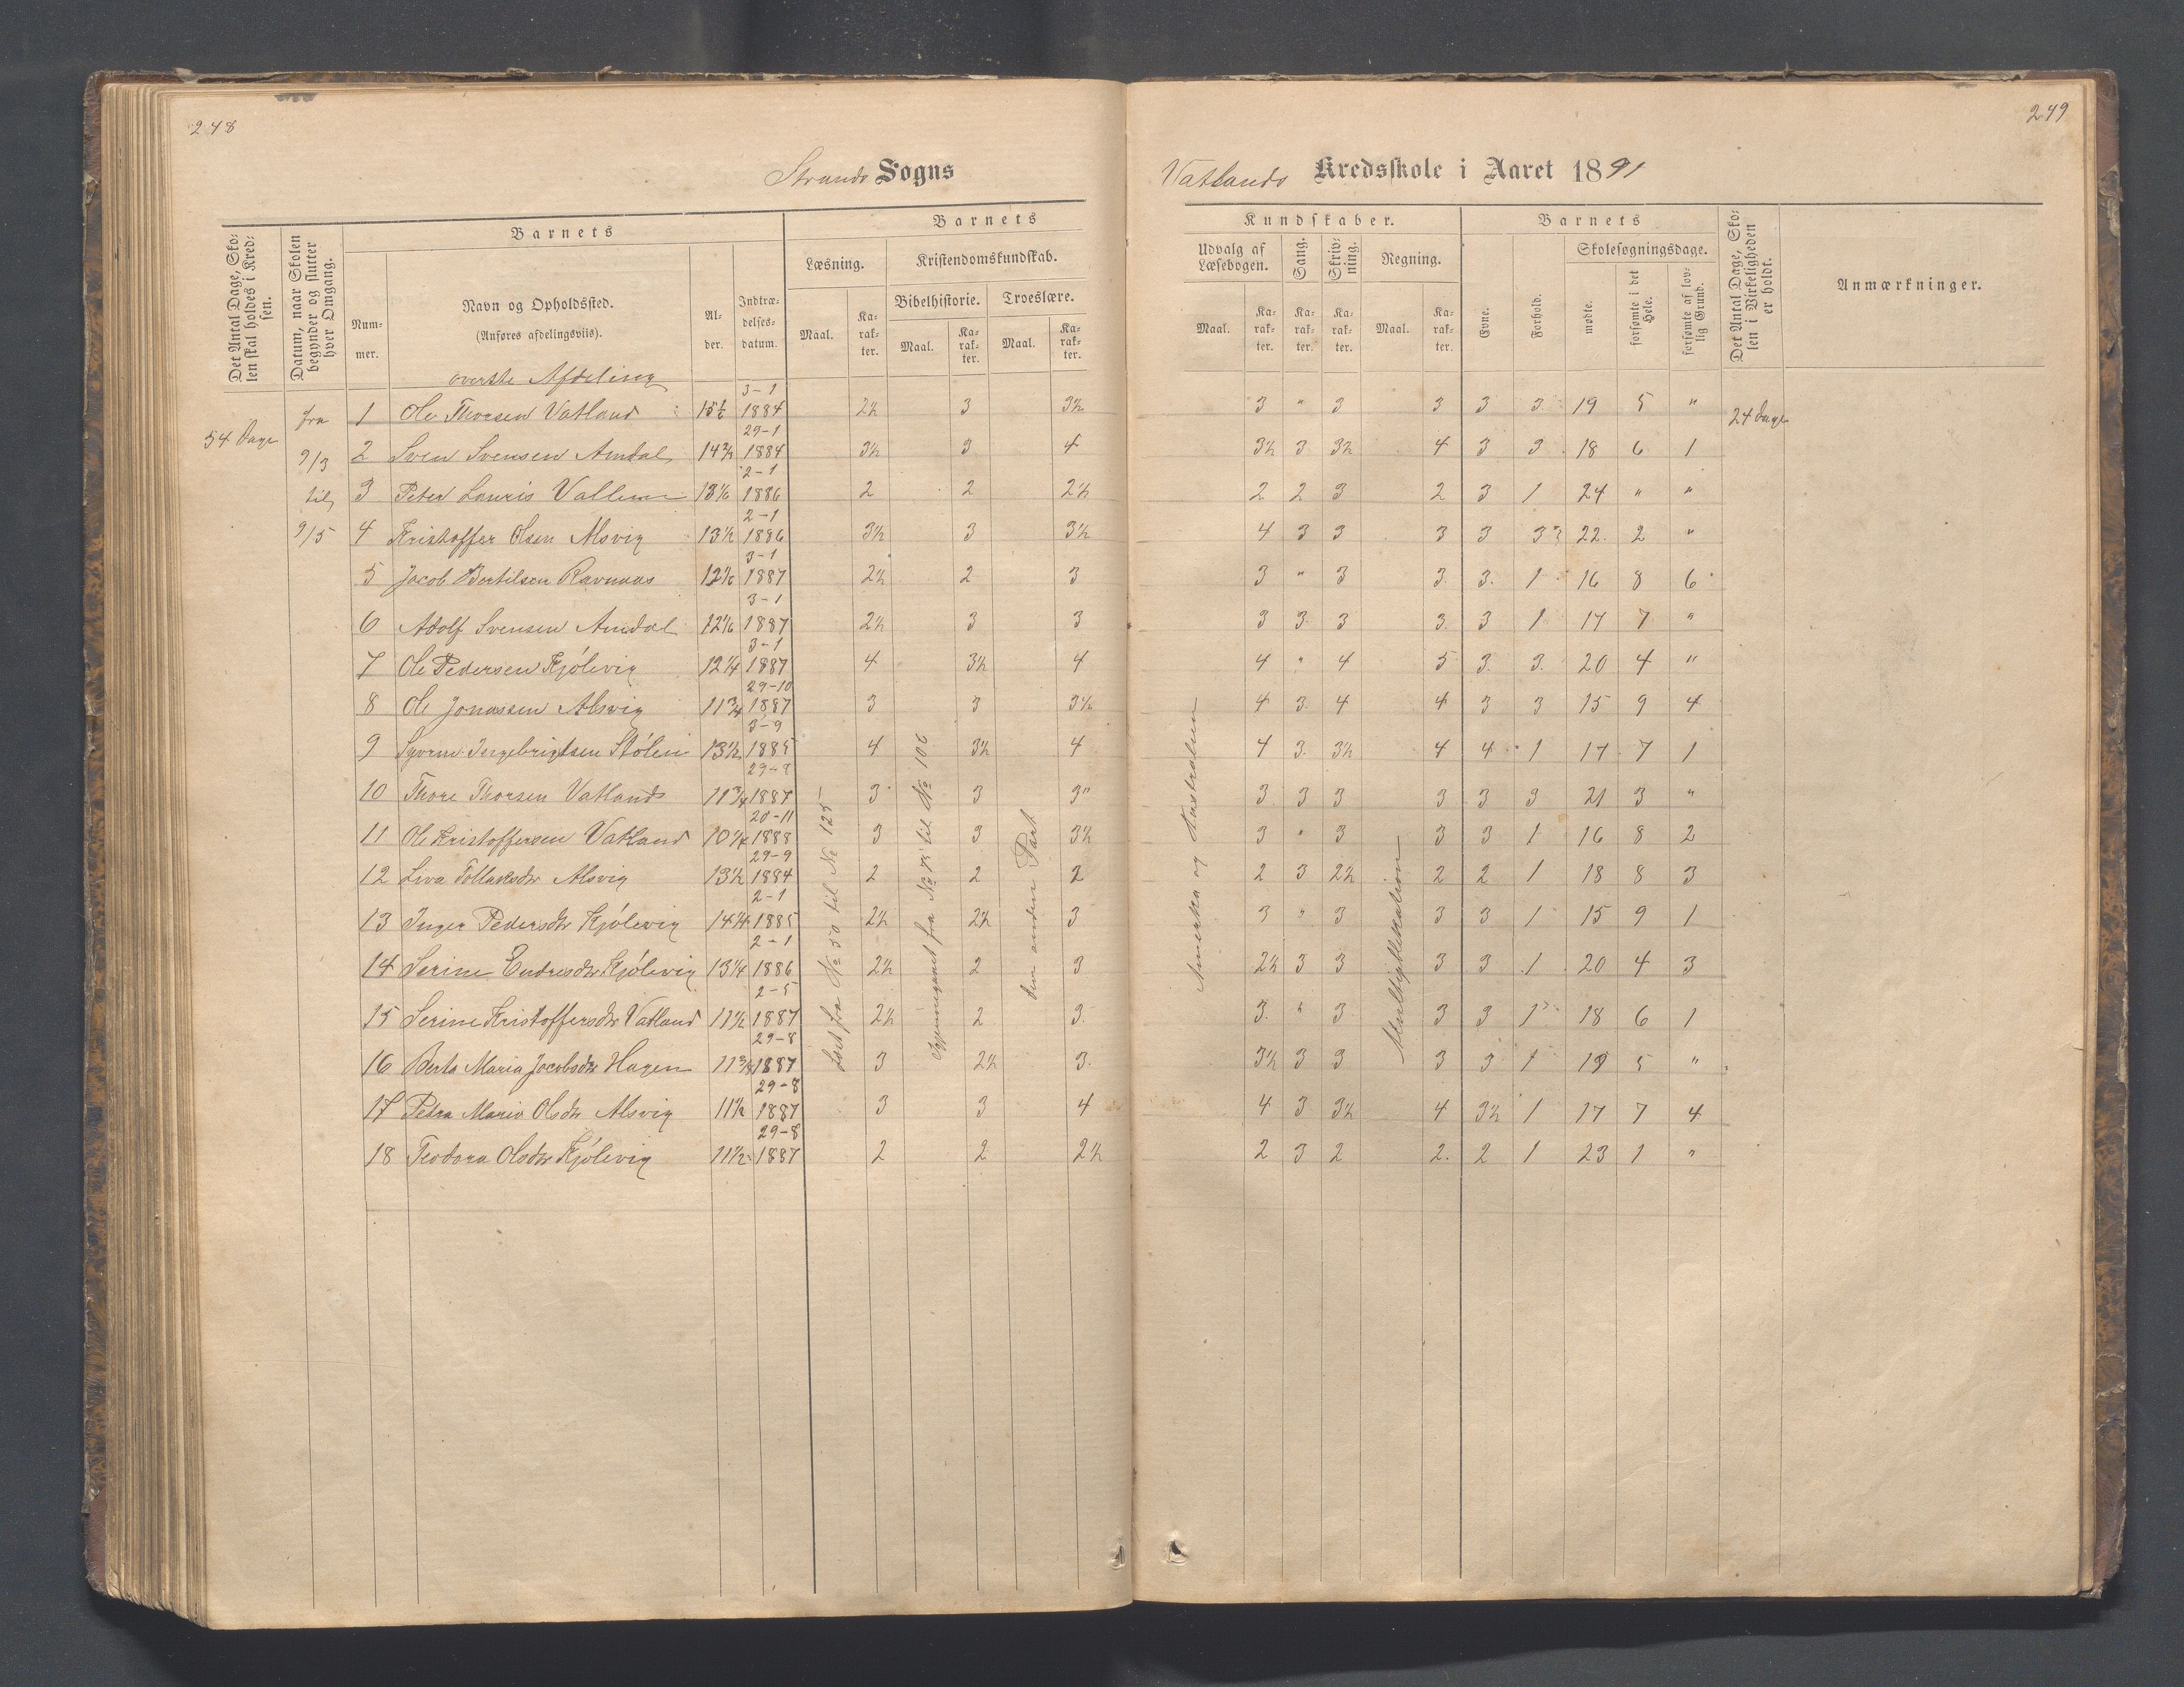 248
249
Strands Sogns
Vatlands Kredsskole i Aaret 1891
Det Antal Dage, Skolen skal holdes i Kredsen.
Datum, naar Skolen begynder og slutter hver Omgang.
Barnets
Nummer.
Navn og Opholdssted.
(Anføres afdelingsviis).
Alder.
Indtrædelsesdatum.
Barnets
Læsning.
Kristendomskundskab.
Bibelhistorie.
Troeslære.
Maal.
Karakter.
Maal.
Karakter.
Maal.
Karakter.
Kundskaber.
Udvalg af Læsebogen.
Sang.
Skrivning.
Regning.
Maal.
Karakter.
Karakter.
Karakter.
Maal.
Karakter.
Barnets
Evne.
Forhold.
Skolesøgningsdage.
mødte.
forsømte i det Hele.
forsømte af lovlig Grund.
Det Antal Dage, Skolen i Virkeligheden er holdt.
Anmærkninger.
øverste Afdeling
54 Dage
fra
9/3
til
9/5
1 Ole Thorsen Vatland 15½ 3-1 1884 2½ 3 3½ 3 " 3 3 3 3 19 5 " 24 Dage
2 Sven Svensen Amdal 14¾ 29-1 1884 3½ 3 4 3½ 3 3½ 4 3 3 18 6 1
3 Peter Lauris 13 1/6 2-1 1886 2 2 2½ 2 2 3 2 3 1 24 " "
4 Kristoffer Olsen Alsvig 13½ 2-1 1886 3½ 3 3½ 4 3 3 3 3 3 22 2 "
5 Jacob Bertilsen Ravnaas 3-1 1887 2½ 2 3 3 " 3 3 3 1 16 8 6
6 Adolf Svensen Amdal 12 1/6 3-1 1887 2½ 3 3 3 3 3 3 3 1 17 7 "
7 Ole Pedersen Kjølevig 12¼ 3-1 1887 4 3½ 4 4 " 4 5 3 3 20 4 "
8 Ole Jonassen Alsvig 11¾ 29-10 1887 3 3 3½ 4 3 4 4 3 3 15 9 4
9 Ingebrigtsen Stølen 13½ 3-9 1885 4 3½ 4 4 3 3½ 4 4 1 17 7 1
10 Thore Thorsen Vatland 11¾ 29-8 1887 3 3 3 3 3 3 3 3 3 21 3 "
11 Ole Kristoffersen Vatland 10¼ 20-11 1888 3 3 3½ 3 " 3 3 3 1 16 8 2
12 Liva Tollaksdtr Alsvig 13½ 29-9 1884 2 2 2 2 3 2½ 2 2 1 18 8 3
13 Inger Pedersdtr Kjølevig 14¼ 2-1 1885 2½ 2½ 3 3 " 3 3 3 1 15 9 1
14 Serine Endresdtr Kjølevig 13¼ 2-1 1886 2½ 2 3 2½ 3 3 3 3 1 20 4 3
15 Serine Kristoffersdtr Vatland 11½ 2-5 1887 2½ 2 3 3 " 3 3 3 1 18 6 1
16 Berta Maria Jacobsdtr Hagen 11¾ 29-8 1887 3 2½ 3 3½ 3 3 3 3 1 19 5 "
17 Petra Marie Olsdtr Alsvig 11½ 29-8 1887 3 3 4 4 3 3½ 4 3½ 1 17 7 4
18 Teodora Olsdtr Kjølevig 11½ 29-8 1887 2 2 2½ 2 3 2 2 2 1 23 1 "
Læst fra № 50 til № 125
Gjennemgaaet fra № til № 106
den anden Part
Amerika og Australien
Multiplikation